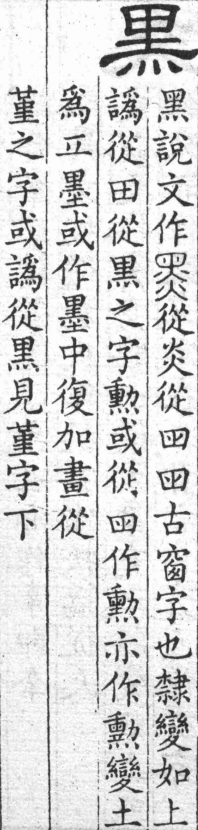 黒
黑說文作𪐗從炎從囧囧古窗字也隸變如上
譌從田從黑之字勳或從囧作勳亦作勳變土
爲𠀍墨或作墨中復加畫從
堇之字或譌從黑見堇字下